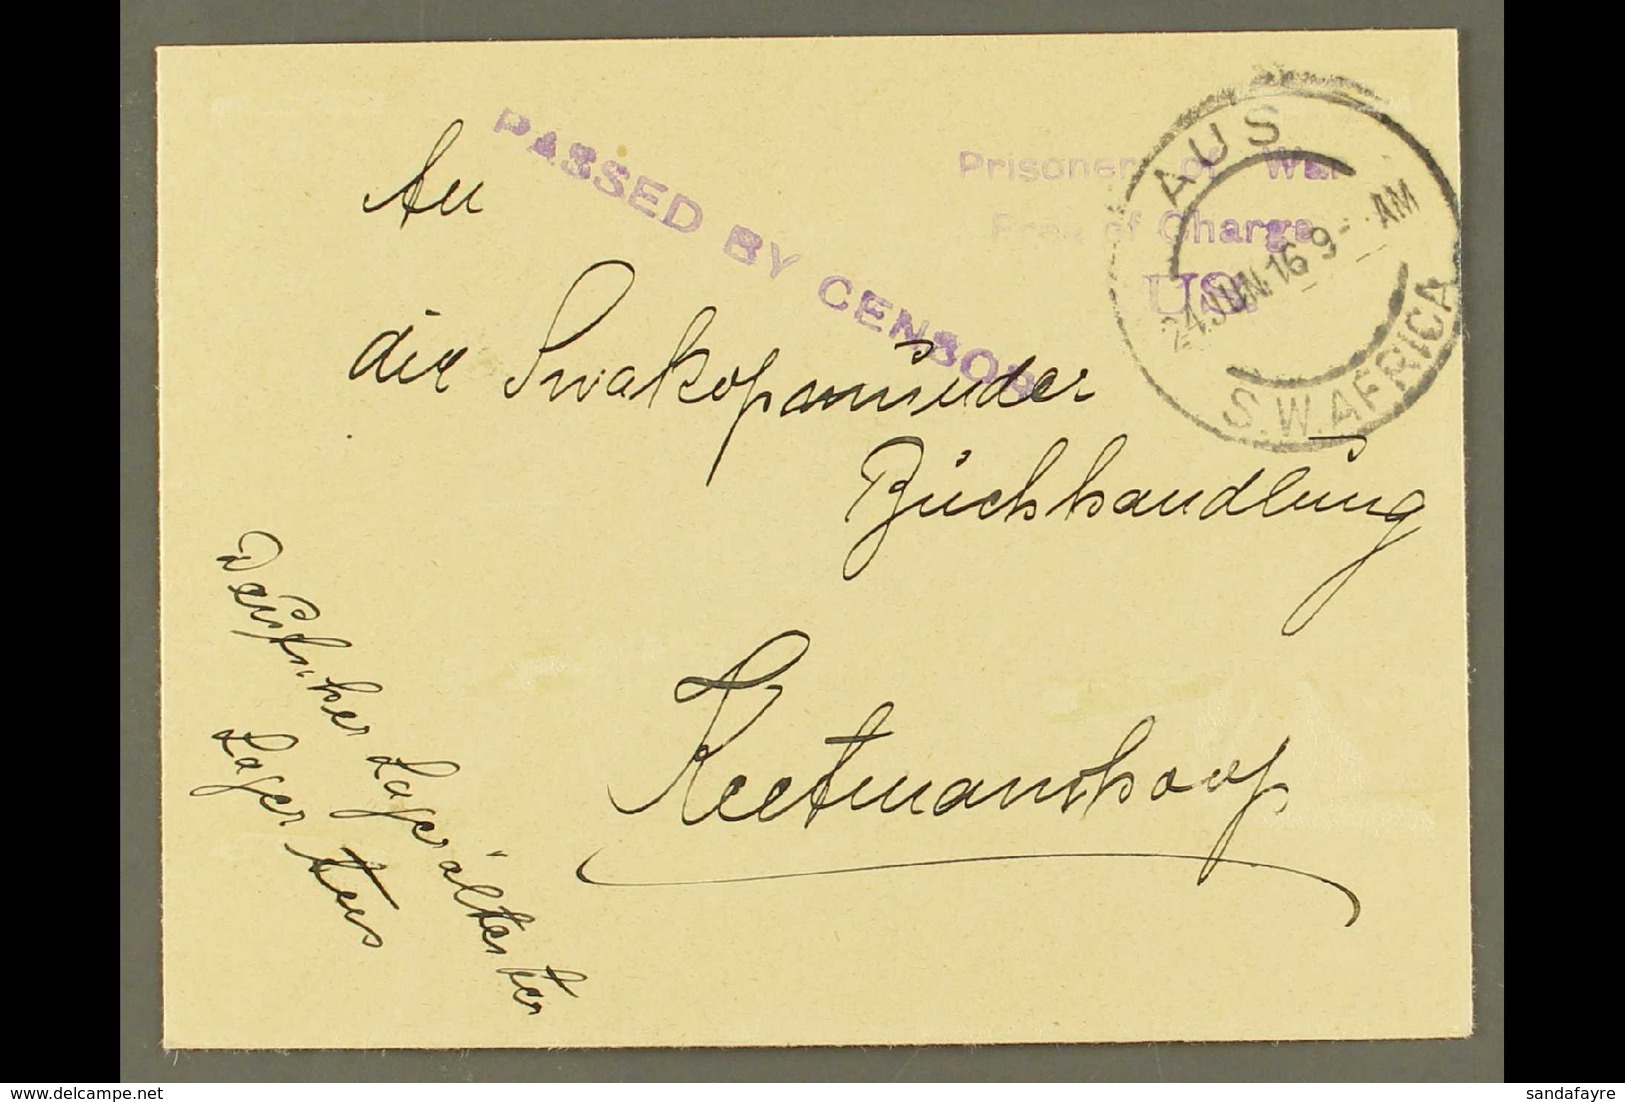 PASSED BY CENSOR
Prisoner of War
Free of Charge
AUS
24 JUN 16 9 - AM
S.W. AFRICA
An
die Swakopmunder
Buchhandlung
Keetmanshoop
Deutscher Lagerältester
Lager Aus
www.delcampe.net
sandafayre